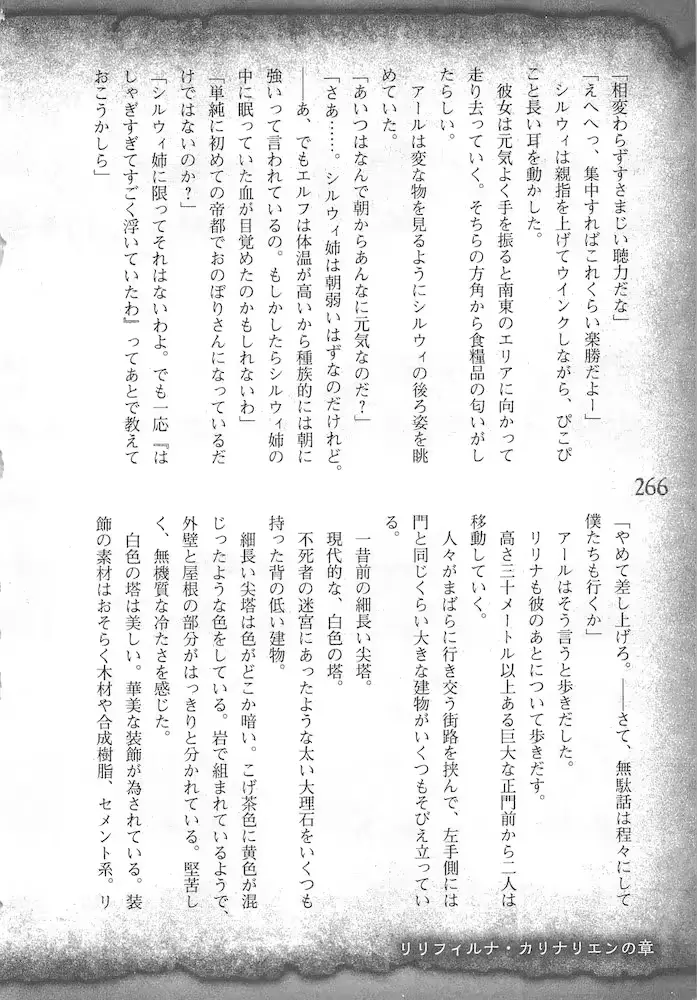 「相変わらずすさまじい聴力だな」
「えへへっ、集中すればこれくらい楽勝だよー」
シルウィは親指を上げてウインクしながら、ぴこぴ
こと長い耳を動かした。
彼女は元気よく手を振ると南東のエリアに向かって
走り去っていく。そちらの方角から食糧品の匂いがし
たらしい。
アールは変な物を見るようにシルウィの後ろ姿を眺
めていた。
「あいつはなんで朝からあんなに元気なのだ?」
「さあ……。シルウィ姉は朝弱いはずなのだけれど。
――あ、でもエルフは体温が高いから種族的には朝に
強いって言われているの。もしかしたらシルウィ姉の
中に眠っていた血が目覚めたのかもしれないわ」
「単純に初めての帝都でおのぼりさんになっているだ
けではないのか?」
「シルウィ姉に限ってそれはないわよ。でも一応『は
しゃぎすぎてすごく浮いていたわ』ってあとで教えて
おこうかしら」
266
「やめて差し上げろ。――さて、無駄話は程々にして
僕たちも行くか」
アールはそう言うと歩きだした。
リリナも彼のあとについて歩きだす。
高さ三十メートル以上ある巨大な正門前から二人は
移動していく。
人々がまばらに行き交う街路を挟んで、左手側には
門と同じくらい大きな建物がいくつもそびえ立ってい
る。
一昔前の細長い尖塔。
現代的な、白色の塔。
不死者の迷宮にあったような太い大理石をいくつも
持った背の低い建物。
細長い尖塔は色がどこか暗い。こげ茶色に黄色が混
じったような色をしている。岩で組まれているようで、
外壁と屋根の部分がはっきりと分かれている。堅苦し
く、無機質な冷たさを感じた。
白色の塔は美しい。華美な装飾が為されている。装
飾の素材はおそらく木材や合成樹脂、セメント系。リ
リリフィルナ・カリナリエンの章